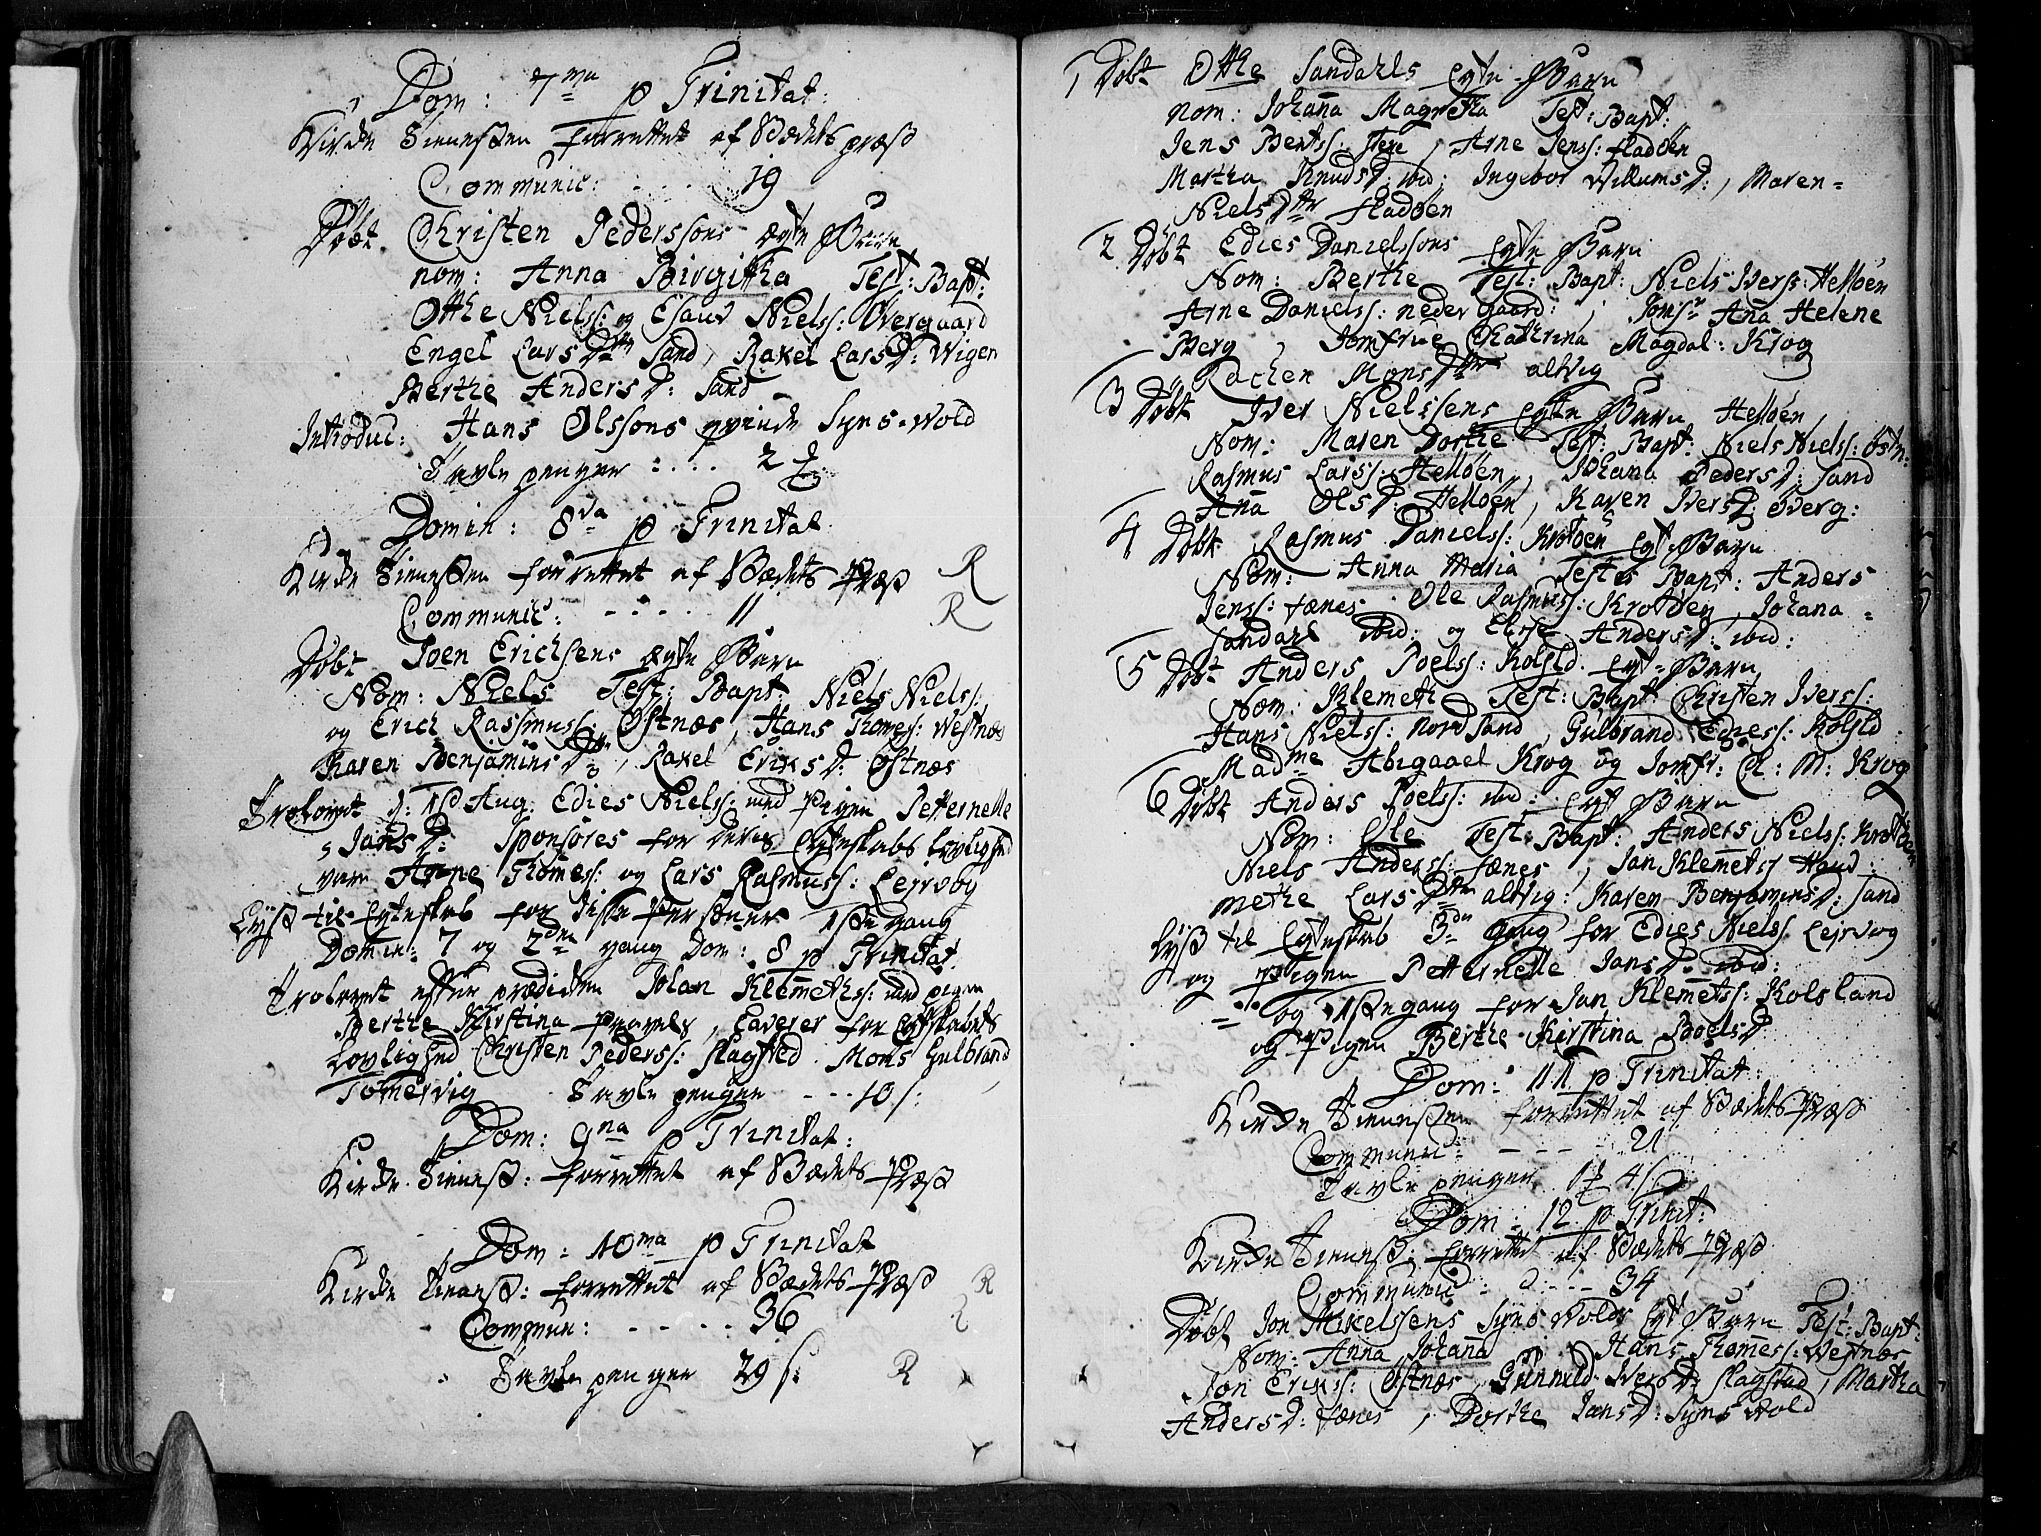 Dom: 7ma p Trinitat:
Kirche Tienesten forrettet af Stædets præst
Communic: - - - - 19
Døbt Christen Pederssons ægte Barn
nom: Anna Birgitha Test: Bapt:
Otthe Nielss: og Esaus Nielss: Øvergaard
Engel Lars Dtr Sand, Rakel Lars D: Wigen
Berthe Anders D: Sand
Introduc: Hans Olssons qvinde Syns-wold
Tavle penger : . . . 2
Domin: 8va p Trinitat.
Kirche Tienesten forrettet af Stædets Præst R
Communic: - - - - 11 R
Døbt Joen Erichsens ægte Barn
Nom: Niels Test: Bapt: Niels Nielss:
og Erich Rassmuss: Østnæs, Hans Thomes: Westnæs
Karen Benjamins Dtr, Rakel Eriks D: Østnæs
Trolovet d: Aug: Edies Nielss: med Pigen Petternelle
Jans D: Sponsores for deris Ægteskabs lovlighed
vare Arne Thomes: og Lars Rasmuss: Lejrvog
Lyst til Egteskab for disse Personer 1ste gang
Domin: 7 og 2den gang Dom: 8 p Trinitat.
Troloved efter prædiken Johan Klemethss: med pigen
Berthe Kirstina Povels, Caverer for Egteskabets
Lovlighed Christen Pederss: Flagsted Mons Gulbrand
Tomervig Tavle penger - - - 10 s:
Dom: 9na p Trinitat:
Kirche Tienest: forrettet af Stædets Præst
Dom: 10ma p Trinitat
Kirche Tienest: forrettet af Stædets Præst R
Commun: - - - - - 36
Tavle penger 29 s: R
1 Døbt Otthe Sandahls Egte Barn
Nom: Johana Magretha Test: Bapt:
Jens Bentss: , Arne Jenss: fladøen
Martha Knuds D: ibid: Ingebor Willums D:, Maren =
Niels Dtr fladøen
2 Døbt Edies Danielssons Egte Barn
Nom: Berthe Test: Bapt: Niels Iverss: Helløen
Arne Daniels: neder Gaard: , Jomfr Ana Helene
Berg , Jomfrue Chathrina Magdal: Krog
Rachen Mons Dtr altvig
3 Døbt Iver Nielssens Egte Barn Helløen
Nom: Maren Dorthe Test: Bapt: Niels Nielss: Østn:
Rasmus Larss: Helløen, Johana Peders D: Sand
Ana Ols D: Helløen, Karen Ivers D: Øverg:
4 Døbt Rasmus Danielss: Krotøen Egt Barn
Nom: Anna Maria Testes Bapt: Anders
Jenss: fænes Ole Rasmuss: Krotøen, Johana =
Sandahl ibid: og Anders D: ibid:
5 Døbt Anders Poelss: Kolsld. Egt=Barn
Nom: Klemeth Test: Bapt: Christen Iverss:
Hans Nielss: Nord Sand, Gulbrand Ediess: Kolsld
Madme Abigaael Krog og Jomfr: C: M: Krog
6 Døbt Anders Poelss: ibid: Egt Barn
Nom: Ole Test: Bapt: Anders Nielss: Krotøen
Niels Anderss: fænes , Jan Klemetss Haud:
Methe Lars Dtr altvig: Karen Benjamins D: Sand
Lyst til Egteskab 3de gang for Edies Niels: Lejrvog
og Pigen Petternelle Jans D: ibid:
og 1ste gang for Jan Klemetss: Kolsland
og Pigen Berthe Kirstina Poels D
Dom: 11 p Trinitat:
Kirche Tienesten forrettet af Stædets Præst
Communic: - - - - 21
Tavle penger 4 s
Dom: 12 p Trinit:
Kirche Tienest: forrettet af Stædets Præst
Communic: - - - 34
Døbt Jon Mikelssens Syns wolds Egt Barn Test: Bapt:
Nom: Anna Johana . Hans Thomess: Westnæs
Jon Erikss: Østnæs, Gunnild Ivers D: Flagstad, Martha
Anders D: fænes , Dorthe Jans D: Syns wold